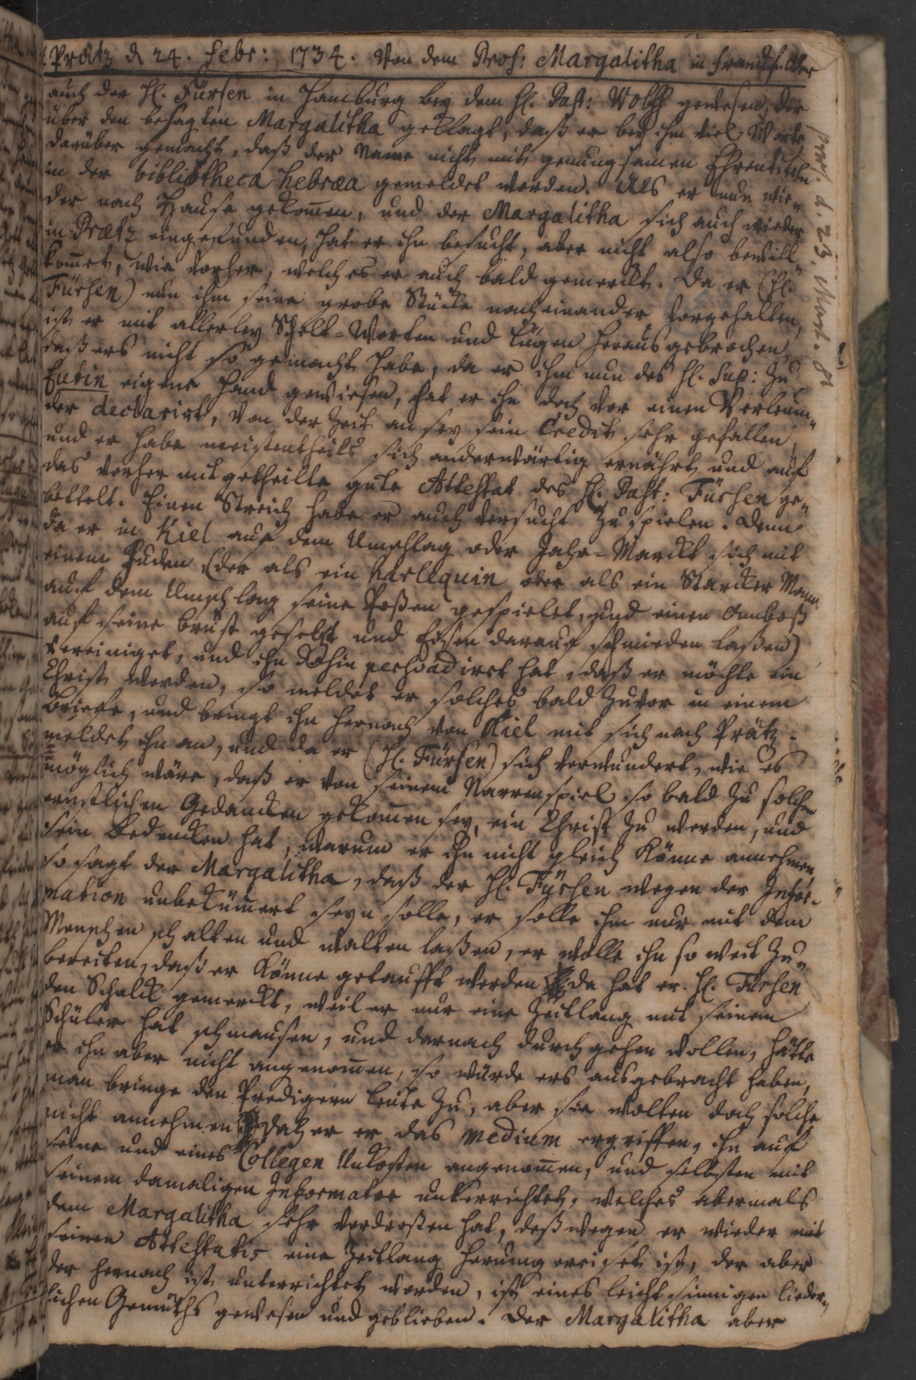 Prætz d 24. Febr: 1734. Von dem Prof: Margalitha in Franckf.
auch der H. Fürsen in Hamburg bey dem H. Past: Wolff gewesen, der
über den besagten Margalitha geklagt, daß er bey ihm viel Worte
darüber gemacht, daß der Name nicht mit genungsamen Ehrentiteln
in der bibliotheca hebræa gemeldet worden. Als er nun wie-
der nach Hause gekom̅en, und der Margalitha sich auch wieder
in Prætz eingefunden, hat er ihn besucht, aber nicht also bewill-
kom̅et, wie vorher, welches er auch bald gemerckt. Da er (H.
Fürsen) nun ihm seine grobe Stücke nacheinander vorgehalten,
ist er mit allerley Schelt-Worten und Lügen herausgebrochen,
daß ers nicht so gemacht habe, da er ihm nun des H. Sup: zu
Eutin eigene Hand gewiesen, hat er ihn doch vor einen Verleum-
der declarirt, von der Zeit an sey sein Credit sehr gefallen,
und er habe meistentheils sich anderwärtig ernährt, und auf
das vorher mitgetheilte gute Attestat des H. Past: Fürsen ge-
bettelt. Einen Streich habe er auch versucht zu spielen. Denn
da er in Kiel auf dem Umschlag oder Jahr-Marckt sich mit
einem Juden (der als ein harlequin oder als ein Starcker Mann
auf dem Umschlag seine Poßen gespielet, und einen Amboß
auf seine Brust gesetzt und Eisen darauf schmieden laßen)
vereiniget, und ihn dahin persvadiret hat, daß er möchte ein
Christ werden, so meldet er solches bald zuvor in einem
Briefe, und bringt ihn hernach von Kiel mit sich nach Prätz:
meldet ihn an, und da er (H. Fürsen) sich verwundert, wie es
möglich wäre, daß er von seinem Narrenspiel so bald zu solchen
ernstlichen Gedancken gekom̅en sey, ein Christ zu werden, und
sein Bedencken hat, warum er ihn nicht gleich könne annehmen,
so sagt der Margalitha, daß der H. Fürsen wegen der Infor-
mation unbeküm̅ert seyn solle, er solle ihm nur mit dem
Menschen schalten und walten laßen, er wolle ihn so weit zu-
bereiten, daß er könne getaufft werden da hat er H. Fürsen
den Schalck gemerckt, weil er nur eine Zeitlang mit seinem
Schüler hat schmausen, und darnach durchgehen wollen, hätte
er ihn aber nicht angenom̅en, so würde ers ausgebracht haben,
man bringe den Predigern Leute zu, aber sie wolten doch solche
nicht annehmen er das medium ergriffen, ihn auf
seine und eines Collegen Unkosten angenom̅en, und selbsten mit
seinem damaligen Informator unterrichtet, welches abermals
dem Margalitha sehr verdroßen hat, deßwegen er wieder mit
seinen Attestatis eine Zeitlang herumgereiset ist, der aber
der hernach ist unterrichtet worden, ist eines leichtsinnigen lieder-
lichen Gemüths gewesen und geblieben. Der Margalitha aber